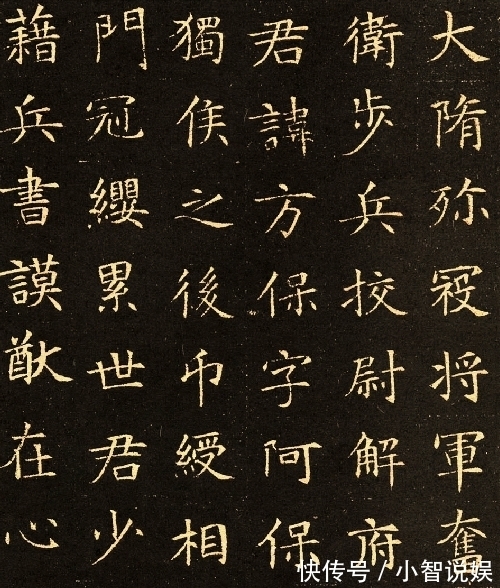 大隋殄寇将軍奮
衛步兵挍尉解府
君諱方保字阿保
獨侯之後币綬相
門冠纓累世君少
藉兵書謨猷在心
快传号/小智说娱